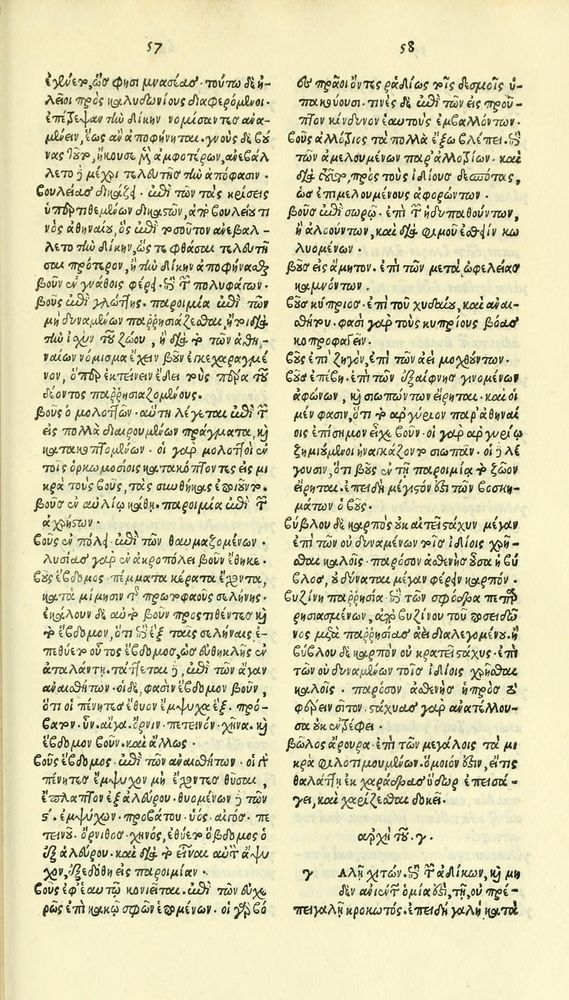 57
ἔθυεν, ὥς φησι μνασέας. τούτῳ δὲ ἠ-
λεῖοι πρὸς καλυδωνίους διαφερόμενοι.
ἐπέτρεψαν τὴν δίκην νομίσαντες ἀνα-
μένειν, ἕως ἂν ἀποφήνηται. γνοὺς δὲ βού-
νας τοῦτο, ἤκουσε μὲν ἀμφοτέρων, ἀνεβάλ
λετο δὲ μέχρι τελευτῆς τὴν ἀπόφασιν.
βουλείας δικάζει. ἐπὶ τῶν τὰς κρίσεις
ὑπερτιθεμένων δικαστῶν, ἀπὸ βουλείου τι
νὸς ἀθηναίου, ὃς ἐπὶ τοσοῦτον ἀνεβάλ-
λετο τὴν δίκην, ὥς τε φθάσαι τελευτῆ
σαι πρότερον, ἢ τὴν δίκην ἀποφήνασθαι
βοῦν ἐν γνάθοις φέρει. ἐπὶ τοῦ πολυφάγου.
βοῦς ἐπὶ γλώττης. παροιμία ἐπὶ τῶν
μὴ δυναμένων παρρησιάζεσθαι, ἤτοι διὰ
τὴν ἰσχὺν τοῦ ζώου, ἢ διὰ τὸ τῶν ἀθη-
ναίων νόμισμα ἔχειν βοῦν ἐγκεχαραγμέ
νον, ὅπερ ἐκτείνειν ἔδει τοὺς πέρα τοῦ
δέοντος παρρησιαζομένους.
βοῦς ὁ μολοττῶν. αὕτη λέγεται ἐπὶ τῶν
εἰς πολλὰ διαιρουμένων πράγματα, καὶ
κατακοπτομένων. οἱ γὰρ μολοττοὶ ἐν
τοῖς ὁρκωμοσίοις κατακόπτοντες εἰς μι
κρὰ τοὺς βοῦς, τὰς συνθήκας ἐποιοῦντο.
βοῦς ἐν αὐλίῳ κάθῃ. παροιμία ἐπὶ τῶν
ἀχρήστων.
βοῦς ἐν πόλει. ἐπὶ τῶν θαυμαζομένων.
λυσίας γὰρ ἐν ἀκροπόλει βοῦν ἔθηκε.
βοῦς ἕβδομος. πέμματα κέρατα ἔχοντα,
κατὰ μίμησιν τῆς πρωτοφαοῦς σελήνης.
ἐκάλουν δὲ αὐτὸ βοῦν προστιθέντες καὶ
τὸ ἕβδομον, ὅτι ἐπὶ ἓξ ταῖς σελήναις ἐ-
πεθύετο οὗτος ἕβδομος, ὡς εὐθηκλῆς ἐν
ἀταλάντῃ. τάττεται δὲ, ἐπὶ τῶν ἄγαν
ἀναισθήτων. οἱ δὲ, φασὶν ἕβδομον βοῦν,
ὅτι οἱ πένητες ἔθυον ἔμψυχα ἕξ. πρό-
βατον. ὗν. αἶγα. ὄρνιν. πετεινόν. χῆνα. καὶ
ἕβδομον βοῦν. καὶ ἄλλως.
βοῦς ἕβδομος. ἐπὶ τῶν ἀναισθήτων. οἱ γὰρ
πένητες ἔμψυχον μὴ ἔχοντες θῦσαι,
ἔπλαττον ἐξ ἀλεύρου. θυομένων δὲ τῶν
ϛʹ. ἐμψύχων. προβάτου. ὑὸς. αἰγός. πε
τεινοῦ. ὄρνιθος. χηνός, ἐθύετο ὁ ἕβδομος ὁ
ἐξ ἀλεύρου. καὶ διὰ τὸ εἶναι αὐτὸν ἄψυ
χον, ἐξεδόθη εἰς παροιμίαν.
βοῦς ἐφ' ἑαυτῷ κονίεται. ἐπὶ τῶν δυσχε
ρῶς ἐπὶ κακῷ σφῶν ἑπομένων. οἱ γὰρ βό
58
ες πρᾶοι ὄντες ῥαδίως τοῖς δεσμοῖς ὑ-
πακούουσι. τινὲς δὲ ἐπὶ τῶν εἰς προῦ-
πτον κίνδυνον ἑαυτοὺς ἐμβαλόντων.
βοῦς ἀλλόβιος τὰ πολλὰ ἔξω βλέπει. ἐπὶ
τῶν ἀμελουμένων παρ' ἀλλοβίων. καὶ
διὰ τοῦτο, πρὸς τοὺς ἰδίους δεσπότας,
ὡς ἐπιμελουμένους ἀφορώντων.
βοῦς ἐπὶ σωρῷ. ἐπὶ τῶν ἡδυπαθούντων,
ἢ ἁλούντων, καὶ διὰ φιμοῦ ἐσθίειν κω
λυομένων.
βοῦς εἰς ἄμητον. ἐπὶ τῶν μετὰ ὠφελείας
καμνόντων.
βοῦς κύπριος. ἐπὶ τοῦ χυδαίου, καὶ ἀναι-
σθήτου. φασὶ γὰρ τοὺς κυπρίους βόας
κοπροφαγεῖν.
βοῦς ἐπὶ ζυγὸν, ἐπὶ τῶν ἀεὶ μοχθούντων.
βοῦς ἐπέβη. ἐπὶ τῶν ἐξαίφνης γινομένων
ἀφώνων, καὶ σιωπώντων εἴρηται. καὶ οἱ
μέν φασιν, ὅτι τὸ ἀργύριον παρ' ἀθηναί
οις ἐπίσημον εἶχε βοῦν. οἱ γὰρ ἀργυρίῳ
ζημιούμενοι ἠναγκάζοντο σιωπᾶν. οἱ δὲ λέ
γουσιν, ὅτι βοῦς ἐν τῇ παροιμίᾳ τὸ ζῶον
εἴρηται. ἐπειδὴ μέγιστόν ἐστι τῶν βοσκη-
μάτων ὁ βοῦς.
βύβλου δὲ καρπὸς οὐκ αἰτεῖ στάχυν μέγαν
ἐπὶ τῶν οὐ δυναμένων τοῖς ἰδίοις χρῆ-
σθαι καλοῖς. παρόσον ἀσθενὴς οὖσα ἡ βύ
βλος, οὐ δύναται μέγαν φέρειν καρπόν.
βυζίνη παρρησία. ἐπὶ τῶν σφόδρα πεπαρ-
ρησιασμένων, ἀπὸ βυζίνου τοῦ ποσειδῶ
νος μετὰ παρρησίας ἀεὶ διαλεγομένου. ἢ
βύβλου δὲ καρπὸν οὐ κρατεῖ στάχυς. ἐπὶ
τῶν οὐ δυναμένων τοῖς ἰδίοις χρῆσθαι
καλοῖς. παρόσον ἀσθενὴς ἡ πρὸς τὸ
φέρειν σῖτον. στάχυας γὰρ ἀνατέλλου-
σα οὐκ ἐκτρέφει.
βῶλος ἄρουρα. ἐπὶ τῶν μεγάλοις τὰ μι
κρὰ φιλοτιμουμένων. ὅμοιον οὖν, εἴ τις
θαλάττῃ ἐκ χαράδρας ὕδωρ ἐπεισά-
γει, καὶ χαρίζεσθαι δοκεῖ.
ἀρχὴ τοῦ. γ.
γ αλῇ χιτών. ἐπὶ τῶν ἀδίκων, καὶ μη
δὲν ἀνιέντων. ὁμοία ἐστὶ, τῇ, οὐ πρέ-
πει γαλῇ κροκωτός. ἐπειδὴ γαλῆ κατὰ